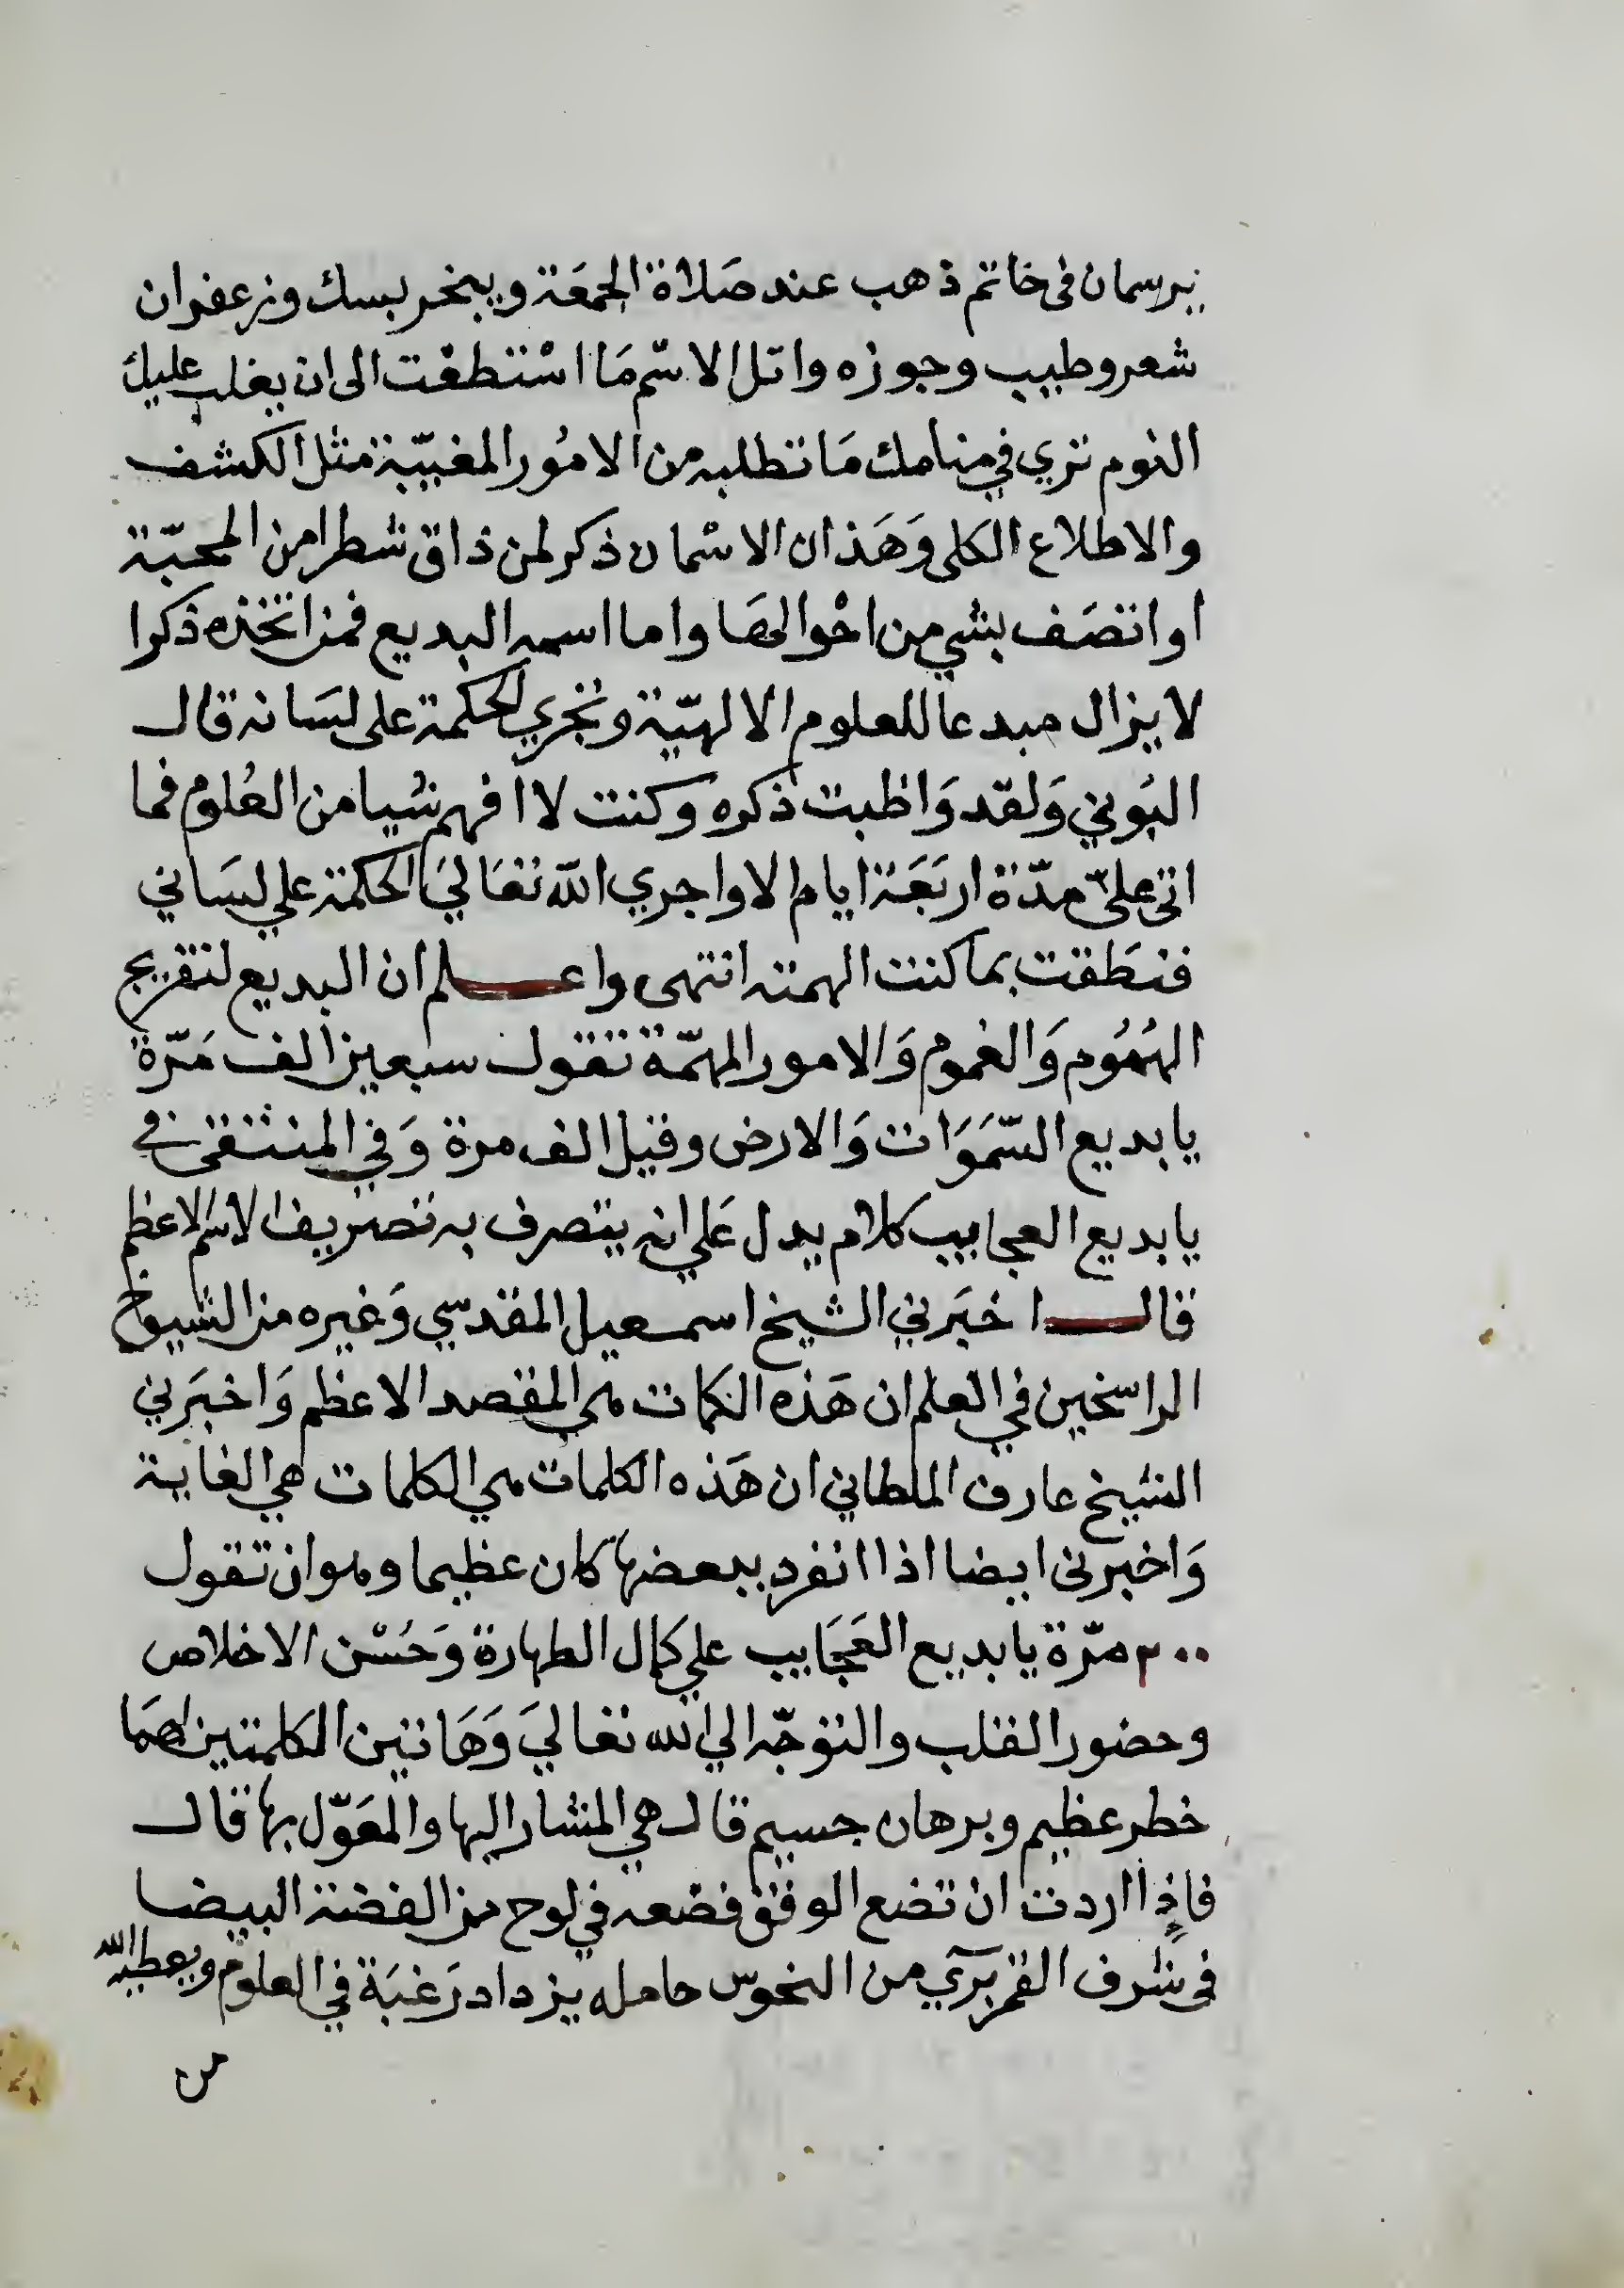 يرسمان فى خاتم ذهب عند صَلاة الجمعَة ويبخر بسك وزعفران
شعر وطيب وجوزه واتل الاسّم مَا اسْتطعْت الى ان يغلب عليك
النوم تري في منامك مَا تطلبه من الامُور المغيبّة مثل الكشف
والاطلاع الكلى وَهَذان الاسْمان ذكر لمن ذاق شطرا من المحبّة
او اتصَف بشي من احْوالهَا واما اسمه البديع فمن اتخذه ذكرا
لا يزال مبدعا للعلوم الالهيّة وتجري الحكمة على لسَانه قال
البُوني وَلقد وَاظبت ذكره وكنت لا افهم شيا من العُلوم فما
اتى عليّ مدّة اربَعَة ايام الا واجري الله تعَاليَ الحكمة علي لسَاني
فنطَقت بما كنت الهمته انتهى واعلم ان البديع لتفريج
الهُمُوم وَالغموم وَالامور المهمّة تقول سبعين الف مَرّة
يا بديع السّمَوَات وَالارض وقيل الف مرة وَفي المنتقى في
يا بديع العجايب كلام يدل عَلي انه يتصرف به تصريف الاسْم الاعظم
قال اخبَرني الشيخ اسمعيل المقدسي وَغيره من الشيوخ
الراسخين في العلم ان هَذه الكمات هي المقصد الاعظم وَاخبَرني
الشيخ عارف الملطاني ان هَذه الكلمات هي الكلمات هي الغاية
وَاخبرنى ايضا اذا انفرد ببعضها كان عظيما وهو ان تقول
٢٠٠ مرّة يا بديع العَجَايب علي كمال الطهارة وَحُسْن الاخلاص
وحضور القلب والتوجّه الي الله تعَاليَ وَهَاتين الكلمتين لهمَا
خطر عظيم وبرهان جسيم قال هي المشار اليها والمعَوّل بها قال
فاذا اردت ان تضع الوفق فضعه في لوح من الفضة البيضا
فى شرف القمر بَرّي من النحوس حامله يزداد رَغبَة في العلوم ويعطيه الله
من